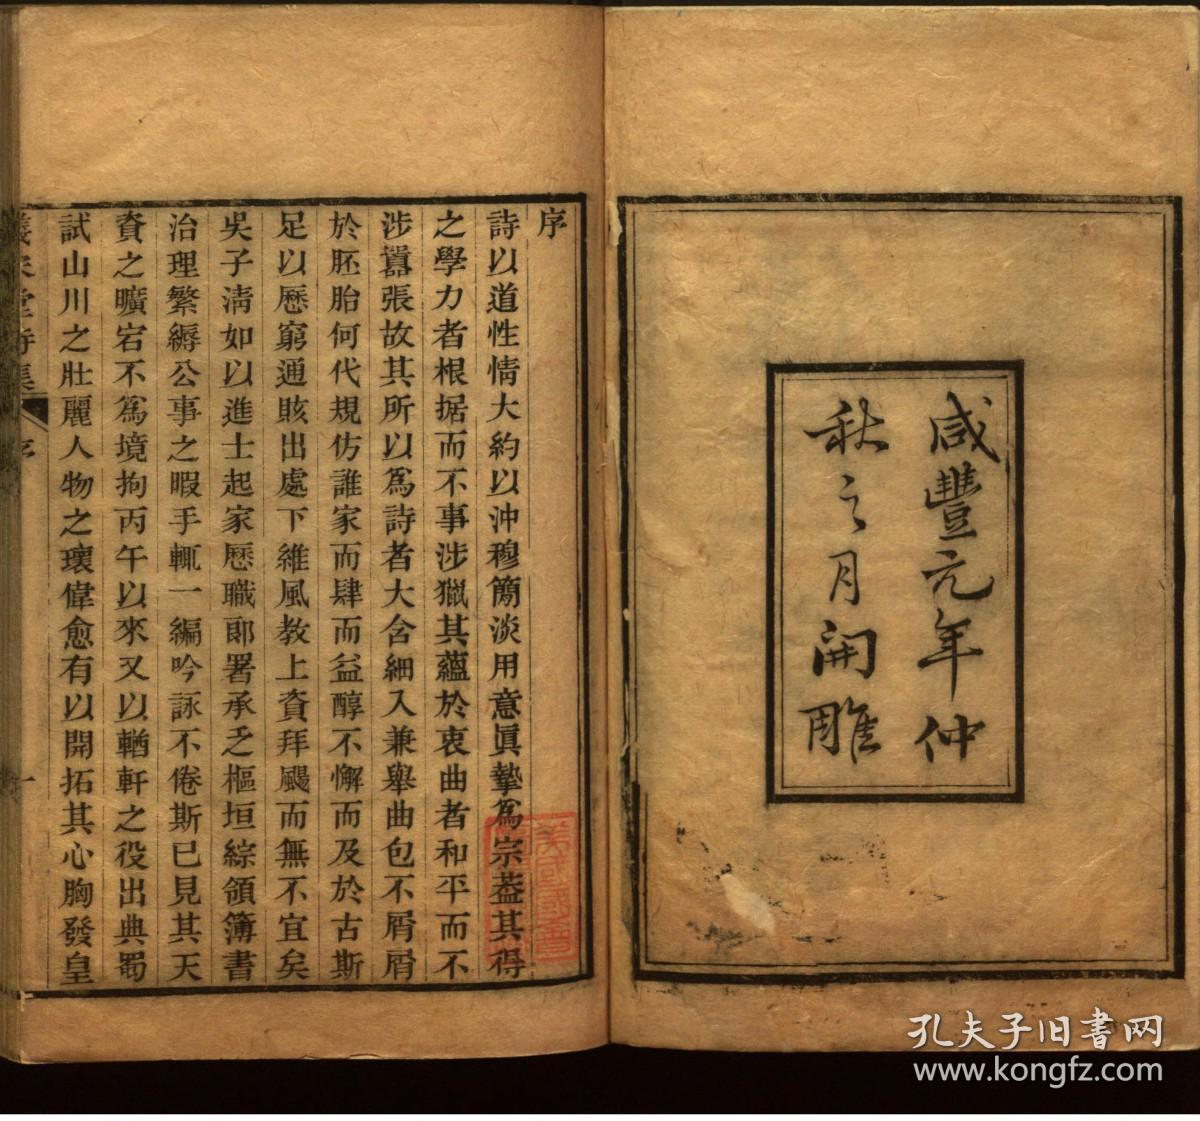 咸豐元年仲
秋之月開雕
序
詩以道性情大約以沖穆簡淡用意眞摯爲宗葢其得
之學力者根据而不事涉獵其蘊於衷曲者和平而不
涉囂張故其所以爲詩者大含細入兼舉曲包不屑屑
於胚胎何代規仿誰家而肆而益醇不懈而及於古斯
足以厯窮通賅出處下維風教上資拜颺而無不宜矣
吳子淸如以進士起家厯職郎署承乏樞垣綜領簿書
治理繁縟公事之暇手輒一編吟詠不倦斯已見其天
資之曠宕不爲境拘丙午以來又以輶軒之役出典蜀
試山川之壯麗人物之瓌偉愈有以開拓其心胸發皇
堂詩集
序
一
孔夫子旧书网
www.kongfz.com